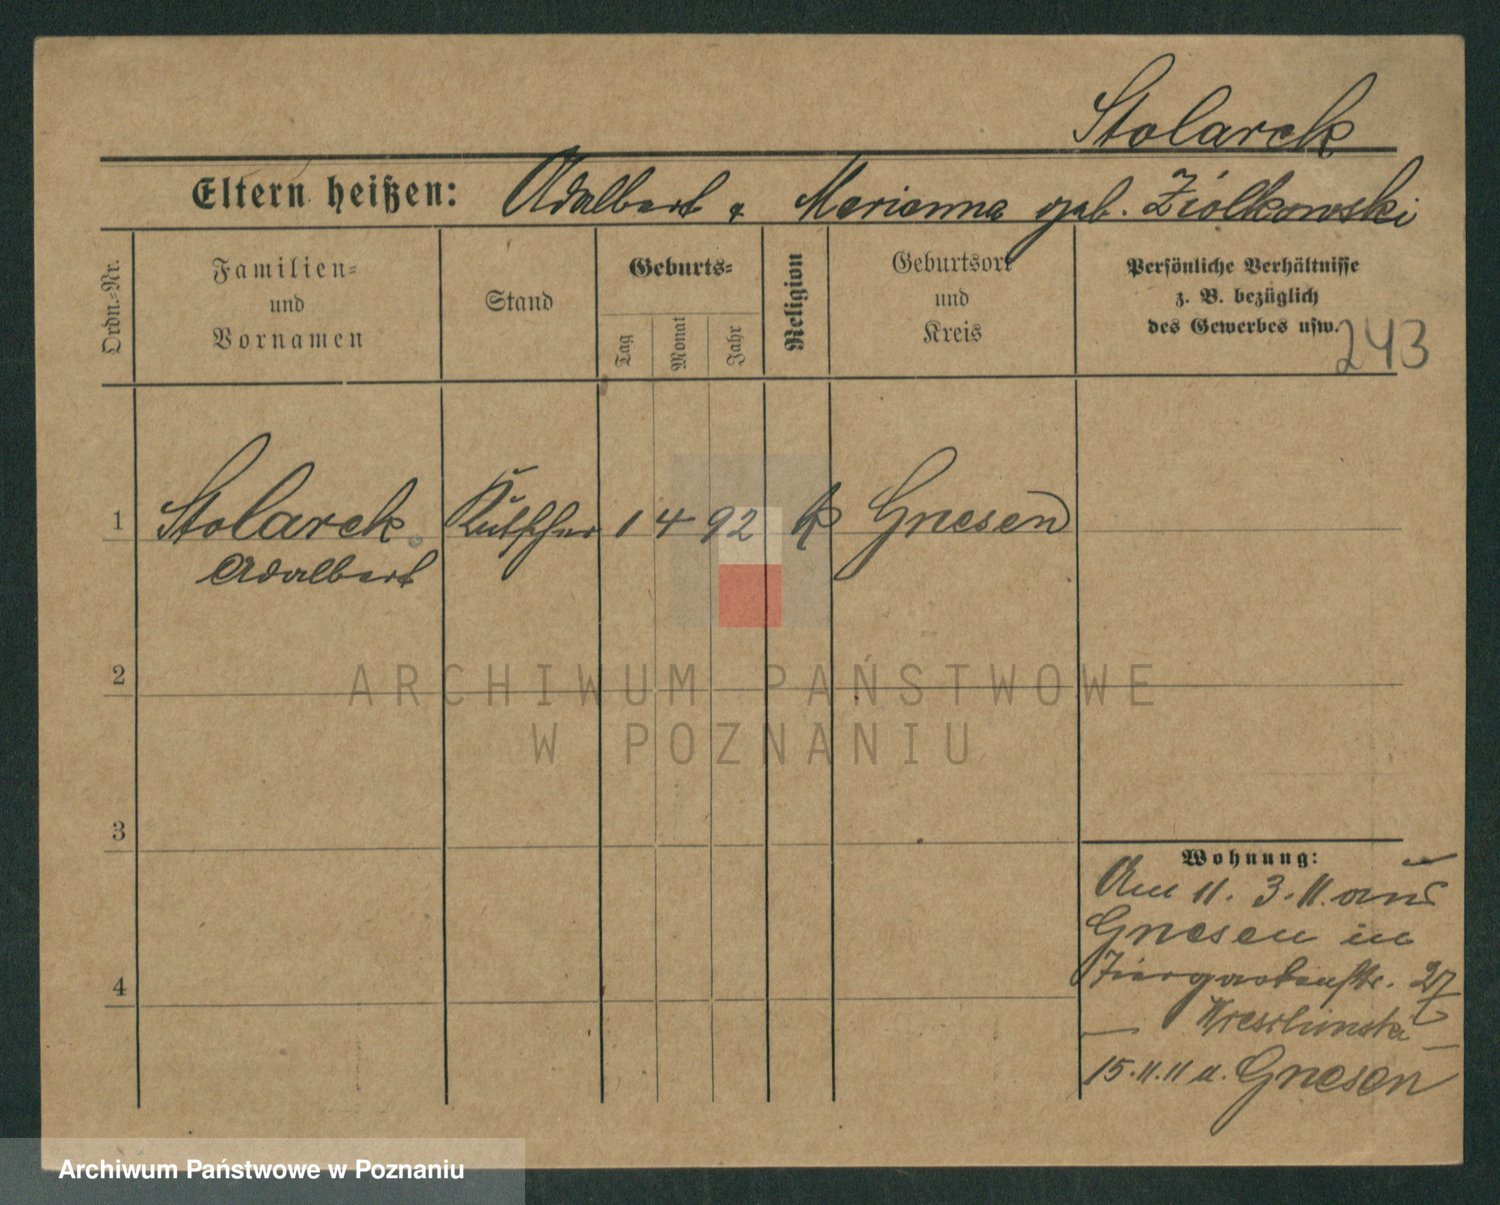 Stolarek
Eltern heißen: Adalbert & Marianna geb. Ziolkowski
Ordn.-Nr.
Familien-
und
Vornamen
Stand
Geburts-
Tag
Monat
Jahr
Religion
Geburtsort
und
Kreis
Persönliche Verhältnisse
z. B. bezüglich
des Gewerbes usw.
243
1 Stolarek Kutscher 1 4 92 k Gnesen
Adalbert
2
3
4
Wohnung:
Am 11. 3. 11. aus
Gnesen in
Tiergartenstr. 27
15. 11. 11 n. Gnesen
ARCHIWUM PAŃSTWOWE
W POZNANIU
Archiwum Państwowe w Poznaniu